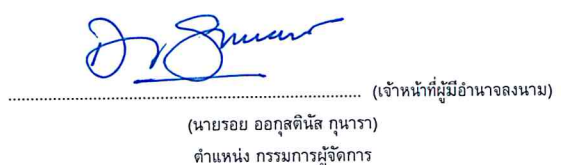 ............................................................ (เจ้าหน้าที่ผู้มีอำนาจลงนาม)
(นายรอย ออกุสตินัส กุนารา)
ตำแหน่ง กรรมการผู้จัดการ